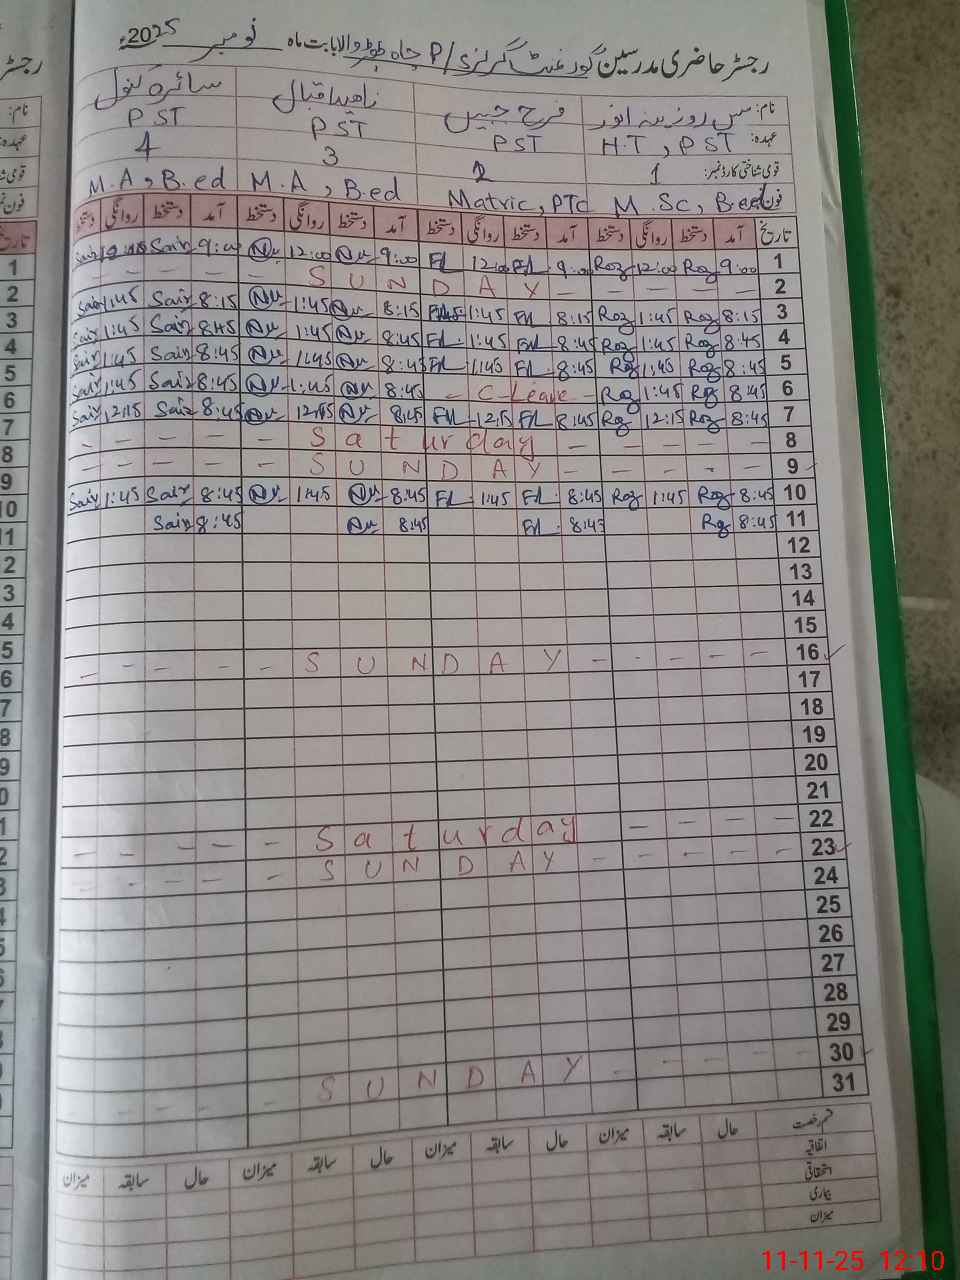 رجسٹر حاضری مدرسین گورنمنٹ گرلز P/ چاہ والا بابت ماہ نومبر 2025ء
نام: مس روزینہ انور فرح جبیں زاہدہ اقبال سائرہ کنول
عہدہ: H.T , PST PST PST PST
قومی شناختی کارڈ نمبر: 1 2 3 4
فون M.Sc, B.ed Matric, PTC M.A , B.ed M.A , B.ed
تاریخ آمد دستخط روانگی دستخط آمد دستخط روانگی دستخط آمد دستخط روانگی دستخط آمد دستخط روانگی دستخط
1 9:00 Roz 12:00 Roz 9:00 FL 12:00 FL 9:00 12:00 9:00 Sair Sair
2 - - - - - S U N D A Y - - - - -
3 8:15 Roz 1:45 Roz 8:15 FL 1:45 8:15 1:45 8:15 Sair 1:45 Sair
4 8:45 Roz 1:45 Roz 8:45 FL 1:45 FL 8:45 1:45 8:45 Sair 1:45 Sair
5 8:45 Roz 1:45 Roz 8:45 FL 1:45 FL 8:45 1:45 8:45 Sair 1:45 Sair
6 8:45 Roz 1:45 Roz - C-Leave - 8:45 1:45 8:45 Sair 1:45 Sair
7 8:45 Roz 12:15 Roz 8:45 FL 12:15 FL 8:45 12:15 8:45 Sair 12:15 Sair
8 - - - - - Saturday - - - - -
9 - - - - - S U N D A Y - - - - -
10 8:45 Roz 1:45 Roz 8:45 FL 1:45 FL 8:45 1:45 8:45 Sair 1:45 Sair
11 8:45 Roz 8:45 FL 8:45 8:45 Sair
12
13
14
15
16 - - - - - S U N D A Y - - - - -
17
18
19
20
21
22 - - - - - Saturday - - - - -
23 - - - - - S U N D A Y - - - - -
24
25
26
27
28
29
30 - - - - - S U N D A Y - - - - -
31
قسم رخصت حال سابقہ میزان حال سابقہ میزان حال سابقہ میزان حال سابقہ میزان
اتفاقیہ
استحقاقی
بیماری
میزان
11-11-25 12:10